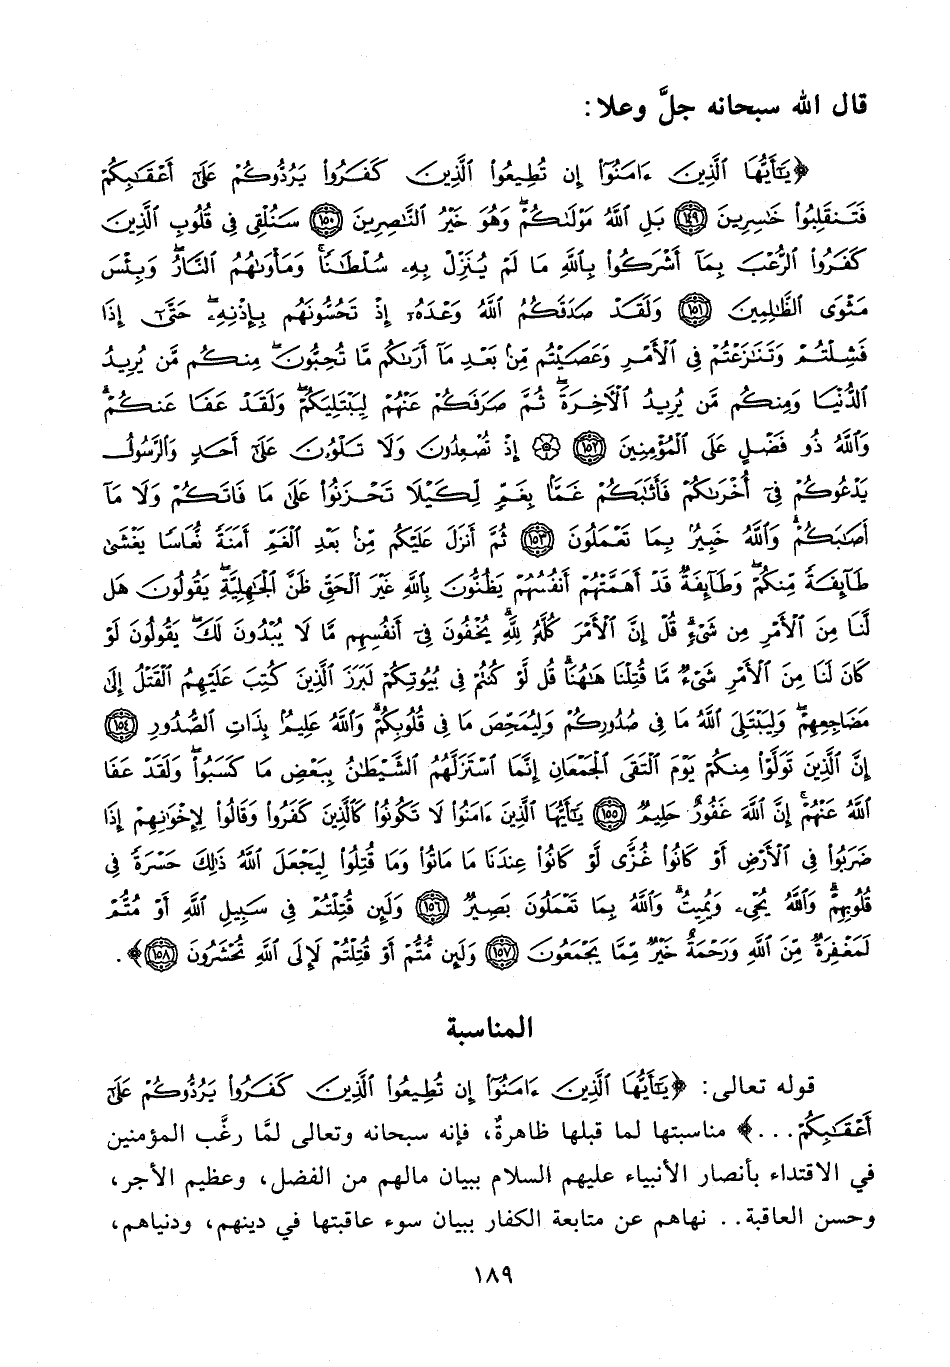 قال الله سبحانه جلَّ وعلا:
﴿يَٰٓأَيُّهَا ٱلَّذِينَ ءَامَنُوٓا۟ إِن تُطِيعُوا۟ ٱلَّذِينَ كَفَرُوا۟ يَرُدُّوكُمْ عَلَىٰٓ أَعْقَٰبِكُمْ
فَتَنقَلِبُوا۟ خَٰسِرِينَ ﴿١٤٩﴾ بَلِ ٱللَّهُ مَوْلَىٰكُمْ ۖ وَهُوَ خَيْرُ ٱلنَّٰصِرِينَ ﴿١٥٠﴾ سَنُلْقِى فِى قُلُوبِ ٱلَّذِينَ
كَفَرُوا۟ ٱلرُّعْبَ بِمَآ أَشْرَكُوا۟ بِٱللَّهِ مَا لَمْ يُنَزِّلْ بِهِۦ سُلْطَٰنًا ۖ وَمَأْوَىٰهُمُ ٱلنَّارُ ۚ وَبِئْسَ
مَثْوَى ٱلظَّٰلِمِينَ ﴿١٥١﴾ وَلَقَدْ صَدَقَكُمُ ٱللَّهُ وَعْدَهُۥٓ إِذْ تَحُسُّونَهُم بِإِذْنِهِۦ ۖ حَتَّىٰٓ إِذَا
فَشِلْتُمْ وَتَنَٰزَعْتُمْ فِى ٱلْأَمْرِ وَعَصَيْتُم مِّنۢ بَعْدِ مَآ أَرَىٰكُم مَّا تُحِبُّونَ ۚ مِنكُم مَّن يُرِيدُ
ٱلدُّنْيَا وَمِنكُم مَّن يُرِيدُ ٱلْءَاخِرَةَ ۚ ثُمَّ صَرَفَكُمْ عَنْهُمْ لِيَبْتَلِيَكُمْ ۖ وَلَقَدْ عَفَا عَنكُمْ ۗ
وَٱللَّهُ ذُو فَضْلٍ عَلَى ٱلْمُؤْمِنِينَ ﴿١٥٢﴾ ۞ إِذْ تُصْعِدُونَ وَلَا تَلْوُۥنَ عَلَىٰٓ أَحَدٍ وَٱلرَّسُولُ
يَدْعُوكُمْ فِىٓ أُخْرَىٰكُمْ فَأَثَٰبَكُمْ غَمًّۢا بِغَمٍّ لِّكَيْلَا تَحْزَنُوا۟ عَلَىٰ مَا فَاتَكُمْ وَلَا مَآ
أَصَٰبَكُمْ ۗ وَٱللَّهُ خَبِيرٌۢ بِمَا تَعْمَلُونَ ﴿١٥٣﴾ ثُمَّ أَنزَلَ عَلَيْكُم مِّنۢ بَعْدِ ٱلْغَمِّ أَمَنَةً نُّعَاسًا يَغْشَىٰ
طَآئِفَةً مِّنكُمْ ۖ وَطَآئِفَةٌ قَدْ أَهَمَّتْهُمْ أَنفُسُهُمْ يَظُنُّونَ بِٱللَّهِ غَيْرَ ٱلْحَقِّ ظَنَّ ٱلْجَٰهِلِيَّةِ ۖ يَقُولُونَ هَل
لَّنَا مِنَ ٱلْأَمْرِ مِن شَىْءٍ ۗ قُلْ إِنَّ ٱلْأَمْرَ كُلَّهُۥ لِلَّهِ ۗ يُخْفُونَ فِىٓ أَنفُسِهِم مَّا لَا يُبْدُونَ لَكَ ۖ يَقُولُونَ لَوْ
كَانَ لَنَا مِنَ ٱلْأَمْرِ شَىْءٌ مَّا قُتِلْنَا هَٰهُنَا ۗ قُل لَّوْ كُنتُمْ فِى بُيُوتِكُمْ لَبَرَزَ ٱلَّذِينَ كُتِبَ عَلَيْهِمُ ٱلْقَتْلُ إِلَىٰ
مَضَاجِعِهِمْ ۖ وَلِيَبْتَلِىَ ٱللَّهُ مَا فِى صُدُورِكُمْ وَلِيُمَحِّصَ مَا فِى قُلُوبِكُمْ ۗ وَٱللَّهُ عَلِيمٌۢ بِذَاتِ ٱلصُّدُورِ ﴿١٥٤﴾
إِنَّ ٱلَّذِينَ تَوَلَّوْا۟ مِنكُمْ يَوْمَ ٱلْتَقَى ٱلْجَمْعَانِ إِنَّمَا ٱسْتَزَلَّهُمُ ٱلشَّيْطَٰنُ بِبَعْضِ مَا كَسَبُوا۟ ۖ وَلَقَدْ عَفَا
ٱللَّهُ عَنْهُمْ ۗ إِنَّ ٱللَّهَ غَفُورٌ حَلِيمٌ ﴿١٥٥﴾ يَٰٓأَيُّهَا ٱلَّذِينَ ءَامَنُوا۟ لَا تَكُونُوا۟ كَٱلَّذِينَ كَفَرُوا۟ وَقَالُوا۟ لِإِخْوَٰنِهِمْ إِذَا
ضَرَبُوا۟ فِى ٱلْأَرْضِ أَوْ كَانُوا۟ غُزًّى لَّوْ كَانُوا۟ عِندَنَا مَا مَاتُوا۟ وَمَا قُتِلُوا۟ لِيَجْعَلَ ٱللَّهُ ذَٰلِكَ حَسْرَةً فِى
قُلُوبِهِمْ ۗ وَٱللَّهُ يُحْىِۦ وَيُمِيتُ ۗ وَٱللَّهُ بِمَا تَعْمَلُونَ بَصِيرٌ ﴿١٥٦﴾ وَلَئِن قُتِلْتُمْ فِى سَبِيلِ ٱللَّهِ أَوْ مُتُّمْ
لَمَغْفِرَةٌ مِّنَ ٱللَّهِ وَرَحْمَةٌ خَيْرٌ مِّمَّا يَجْمَعُونَ ﴿١٥٧﴾ وَلَئِن مُّتُّمْ أَوْ قُتِلْتُمْ لَإِلَى ٱللَّهِ تُحْشَرُونَ ﴿١٥٨﴾﴾.
المناسبة
قوله تعالى: ﴿يَٰٓأَيُّهَا ٱلَّذِينَ ءَامَنُوٓا۟ إِن تُطِيعُوا۟ ٱلَّذِينَ كَفَرُوا۟ يَرُدُّوكُمْ عَلَىٰٓ
أَعْقَٰبِكُمْ...﴾ مناسبتها لما قبلها ظاهرةٌ، فإنه سبحانه وتعالى لمَّا رغَّب المؤمنين
في الاقتداء بأنصار الأنبياء عليهم السلام ببيان مالهم من الفضل، وعظيم الأجر،
وحسن العاقبة.. نهاهم عن متابعة الكفار ببيان سوء عاقبتها في دينهم، ودنياهم،
١٨٩